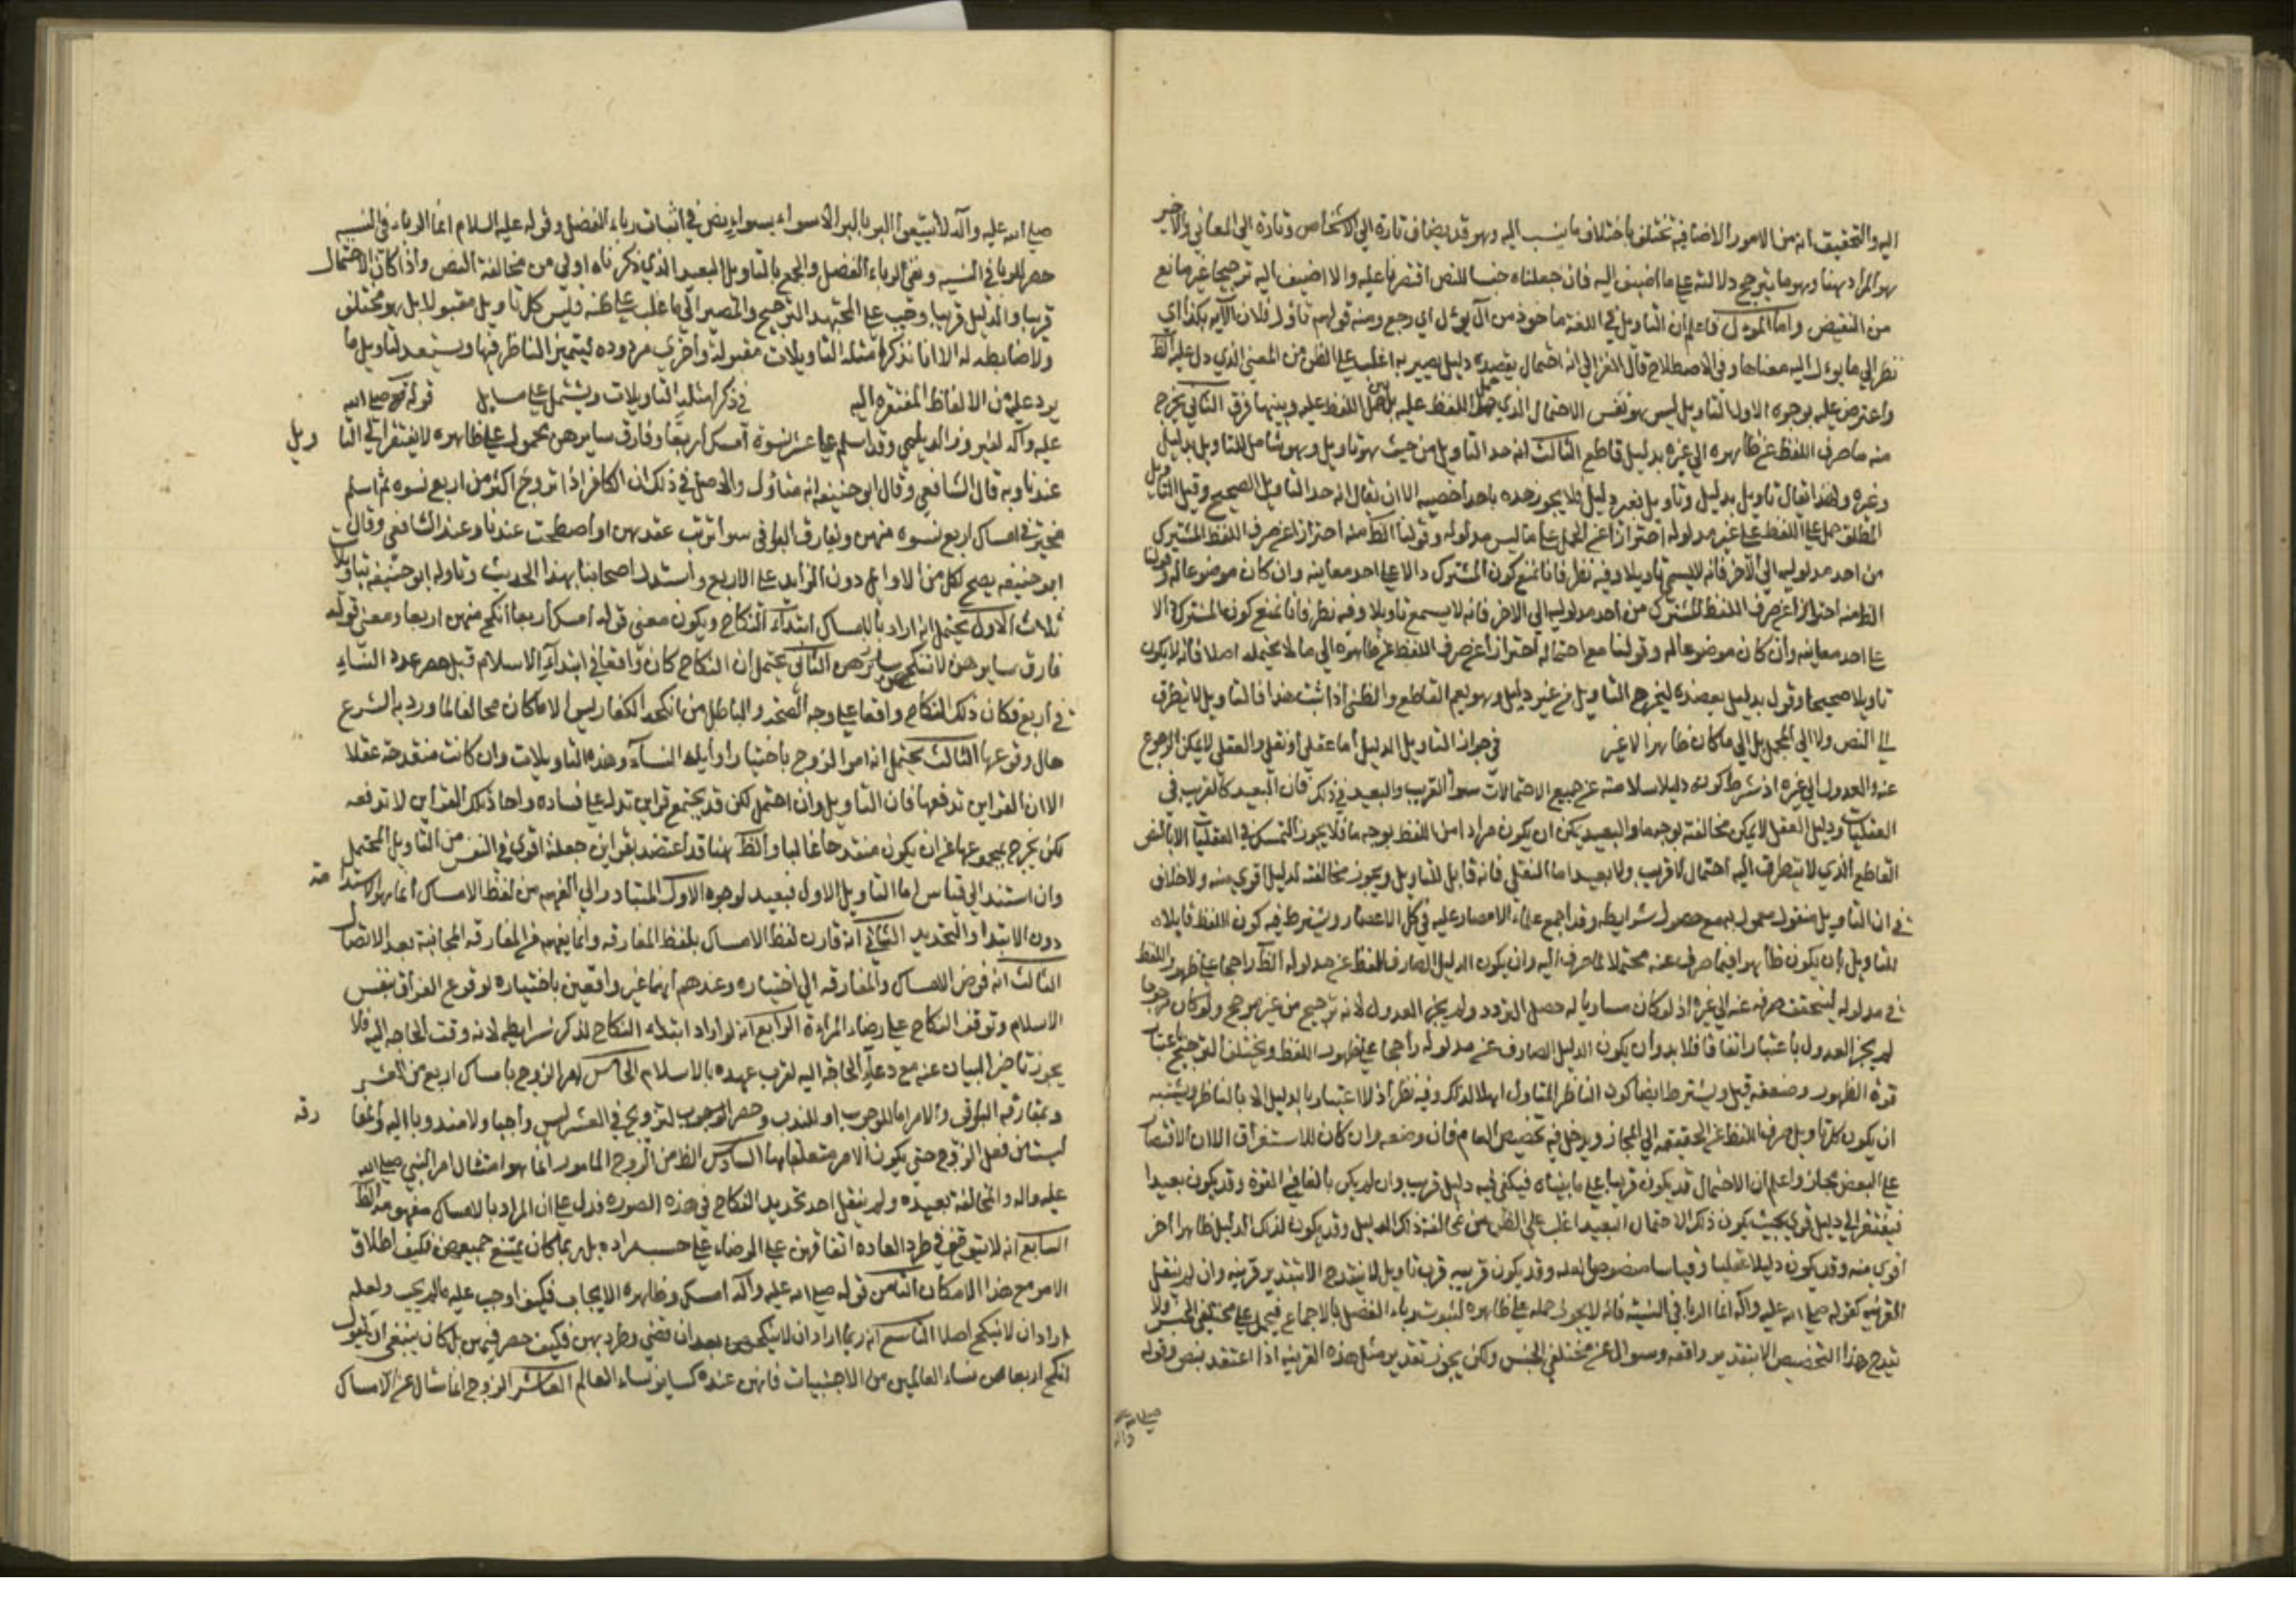 اليه والتحقيق انه من الامور الاضافية تختلف باختلاف ما ينسب اليه وهو قد يضاف تارة الى الاشخاص وتارة الى المعاني والاخير
هو المراد هنا وهو ما يترجح دلالته على ما اضيف اليه فان جعلناه جنسا للنص اقتصرنا عليه والا اضيف اليه ترجيحا غير مانع
من النقيض واما المؤول فاعلم ان التاويل في اللغة ماخوذ من آل يؤل اي رجع ومنه قولهم تاول فلان الآية بكذا اي
نظر الى ما يؤول اليه معناها وفي الاصطلاح قال الغزالي انه احتمال يعضده دليل يصير به اغلب على الظن من المعنى الذي دل عليه الظ
واعترض عليه بوجوه الاول التاويل ليس هو نفس الاحتمال الذي حمل اللفظ عليه بل نفس حمل اللفظ عليه وبينهما فرق الثاني يخرج
منه ما صرف اللفظ عن ظاهره الى غيره بدليل قاطع الثالث انه حد التاويل من حيث هو تاويل وهو شامل للتاويل بدليل
وغيره ولهذا يقال تاويل بدليل وتاويل بغير دليل فلا يجوز حده باحد اخصيه الا ان يقال انه حد التاويل الصحيح وقيل التاويل
المطلق حمل اللفظ على غير مدلوله احترازا عن الحمل على ما ليس مدلوله وقولنا الظ منه احترازا عن صرف اللفظ المشترك
من احد مدلوليه الى الآخر فانه لا يسمى تاويلا وفيه نظر فانا نمنع كون المشترك دالا على احد معانيه وان كان موضوعا له وقولنا
الظ منه احترازا عن صرف اللفظ المشترك من احد مدلوليه الى الاخر فانه لا يسمى تاويلا وفيه نظر فانا نمنع كون المشترك دالا
على احد معانيه وان كان موضوعا له وقولنا مع احتماله احترازا عن صرف اللفظ عن ظاهره الى ما لا يحتمله اصلا فانه لا يكون
تاويلا صحيحا وقوله بدليل يعضده ليخرج التاويل من غير دليل وهو يعم القاطع والظني اذا ثبت هذا فالتاويل لا يتطرق
الى النص ولا الى المجمل بل الى ما كان ظاهرا لا غير في جواز التاويل الدليل اما عقلي او نقلي والعقلي لا يمكن الرجوع
عنه والعدول الى غيره اذ شرط كونه دليلا سلامته عن جميع الاحتمالات سوآء القريب والبعيد في ذلك فان البعيد كالقريب في
العقليات ودليل العقل لا يمكن مخالفته بوجه ما والبعيد يمكن ان يكون مرادا من اللفظ بوجه ما فلا يجوز التمسك في العقليات الا بالنص
القاطع الذي لا يتطرق اليه احتمال لا قريب ولا بعيد اما النقلي فانه قابل للتاويل ويجوز مخالفته لدليل اقوى منه ولا خلاف
في ان التاويل منقول معمول به مع حصول شرايطه وقد اجمع علماء الامصار عليه في كل الاعصار ويشترط فيه كون اللفظ قابلا
للتاويل بان يكون ظاهرا فيما صرف عنه محتملا لما صرف اليه وان يكون الدليل الصارف للفظ عن مدلوله الظ راجحا على ظهور اللفظ
في مدلوله ليتحقق صرفه عنه الى غيره اذ لو كان مساويا له حصل التردد ولم يجز العدول لانه ترجيح من غير مرجح ولو كان مرجوحا
لم يجز العدول باعتباره اتفاقا فلا بد وأن يكون الدليل الصارف عن مدلوله راجحا على ظهور اللفظ ويختلف الترجيح باعتبار
قوة الظهور وضعفه قيل ويشترط ايضا كون الناظر المتاول اهلا لذلك وفيه نظر اذ لا اعتبار بالدليل الا بالناظر ويشبه
ان يكون كل تاويل صرف اللفظ عن الحقيقة الى المجاز ويدخل فيه تخصيص العام فان وضعه وان كان للاستغراق الا ان الاقتصار
على البعض مجاز واعلم ان الاحتمال قد يكون قريبا على ما بيناه فيكفى فيه دليل قريب وان لم يكن بالغا في القوة وقد يكون بعيدا
فيفتقر الى دليل قوي بحيث يكون ذلك الاحتمال البعيد اغلب على الظن من مخالفة ذلك الدليل وقد يكون لذلك الدليل ظاهرا آخر
اقوى منه وقد يكون دليلا عقليا وقياسا منصوص العلة وقد يكون قرينة قرب تاويل لا ينقدح الا بتقدير قرينه وان لم ينقل
القرينه كقوله صلى الله عليه وآله انما الربا في النسيئة فانه لا يجوز حمله على ظاهره لثبوت رباء الفضل بالاجماع فيحمل على مختلفي الجنس ولا
ينقدح هذا التخصيص الا بتقدير واقعه وسوال عن مختلفي الجنس ولكن يجوز تقدير مثل هذه القرينه اذا اعتقد بنص وقوله
صلى الله عليه
وآله
صلى الله عليه وآله لا تبيعوا البر بالبر الا سواء بسواء نص في اثبات رباء الفضل وقوله عليه السلام انما الرباء في النسيه
حصر للربا في النسيه ونفي لرباء الفضل والجمع بالتاويل البعيد الذي ذكرناه اولى من مخالفة النص واذا كان الاحتمال
قريبا والدليل قريبا وجب على المجتهد الترجيح والمصير الى ما غلب على ظنه وليس كل تاويل مقبولا بل هو مختلف
ولا ضابط له الا انا نذكر امثله التاويلات مقبولة وأخرى مردوده ليتميز الناظر فيها ويستعد لتاويل ما
يرد عليه من الالفاظ المفتقره اليه في ذكر امثلة التاويلات ويشتمل على مسايل قوله صلى الله
عليه وآله لفيروز الديلمي وقد اسلم على عشر نسوة آمسك اربعا وفارق سايرهن محمول على ظاهره لا يفتقر الى التا ويل
عندنا وبه قال الشافعي وقال ابو حنيفه انه متاول والاصل في ذلك ان الكافر اذا تزوج اكثر من اربع نسوه ثم اسلم
تخير في امساك اربع نسوه منهن ويفارق البواقي سوا ترتب عقدهن او اصطحبت عندنا وعند الشافعي وقال
ابو حنيفه يصح نكاح من الاوايل دون الزايد على الاربع واستدل اصحابنا بهذا الحديث وتاوله ابو حنيفة بتاويلات
ثلاث الاول يحتمل انه اراد بالامساك ابتداء النكاح ويكون معنى قوله امسك اربعا انكح منهن اربعا ومعنى قوله
فارق سايرهن لا تنكح سايرهن الثاني يحتمل ان النكاح كان واقعا في ابتداء الاسلام قبل حصر عدد النساء
في اربع فكان ذلك النكاح واقعا على وجه الصحة والباطل من انكحة الكفار ليس الا ما كان مخالفا لما ورد به الشرع
حال وقوعها الثالث يحتمل انه امر الزوج باختيار اوايل النسآء وهذه التاويلات وان كانت منقدحة عقلا
الا ان القراين تدفعها فان التاويل وان احتمل لكن قد يجتمع قراين تدل على فساده واحاد تلك القراين لا تدفعه
لكن يخرج بمجموعها عن ان يكون منقدحا غالبا والظ هنا قد اعتضد بقراين جعلته اقوى في النفس من التاويل المحتمل
وان استند الى قياس اما التاويل الاول فبعيد لوجوه الاول المتبادر الى الفهم من لفظ الامساك انما هو الاستدا مة
دون الابتدا والتجديد الثاني انه قارن لفظ الامساك بلفظ المفارقه وانما يفهم من المفارقه المجانبة بعد الاتصال
الثالث انه فوض الامساك والمفارقه الى اختياره وعندهم انهما غير واقعين باختياره لوقوع الفراق بنفس
الاسلام وتوقف النكاح على رضاء المراءة الرابع انه لو اراد ابتداء النكاح لذكر شرايطه لانه وقت الحاجه اليه فلا
يجوز تاخير البيان عنه مع دعاء الحاجة اليه لقرب عهده بالاسلام الخامس امر الزوج بامساك اربع من العشر
وبمفارقه البواقي والامر اما للوجوب او للندب وحصر التزويج في العشر ليس واجبا ولا مندوبا اليه والمفا رقه
ليست من فعل الزوج حتى يكون الامر متعلقا بها السادس الظ من الزوج المامور انما هو امتثال امر النبي صلى الله
عليه واله والمخالفة بعيده ولم ينقل احد تجديد النكاح في هذه الصوره فدل على ان المراد بالامساك مفهومه الظ
السابع انه لا يتوقع في طرد العاده اتفاقهن على الرضاء على حسب مراده بل ربما كان يمتنع جميعهن فكيف اطلاق
الامر مع هذا الامكان الثامن قوله صلى الله عليه وآله امسك وظاهره الايجاب فكيف اوجب عليه ما لم يجب ولعله
اراد ان لا ينكح اصلا التاسع انه ربما اراد ان لا ينكحهن بعد ان قضى وطره منهن فكيف حصر فيهن بل كان ينبغي ان يقول
انكح اربعا من نساء العالمين من الاجنبيات فانهن عنده كساير نساء العالم العاشر الزوج انما سال عن الامساك